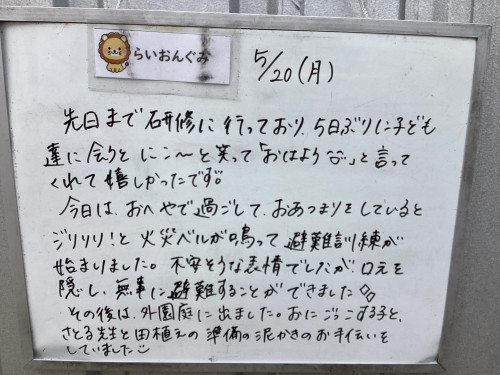 らいおんぐみ
5/20(月)
先日まで研修に行っており、5日ぶりに子ども
達に会うとにこ〜と笑って「おはよう」と言って
くれて嬉しかったです。
今日は、おへやで過ごして、おあつまりをしていると
ジリリリ!と火災ベルが鳴って避難訓練が
始まりました。不安そうな表情でしたが、口元を
隠し、無事に避難することができました
その後は、外園庭に出ました。おにごっこする子と、
さとる先生と田植えの準備の泥かきのお手伝いを
していました